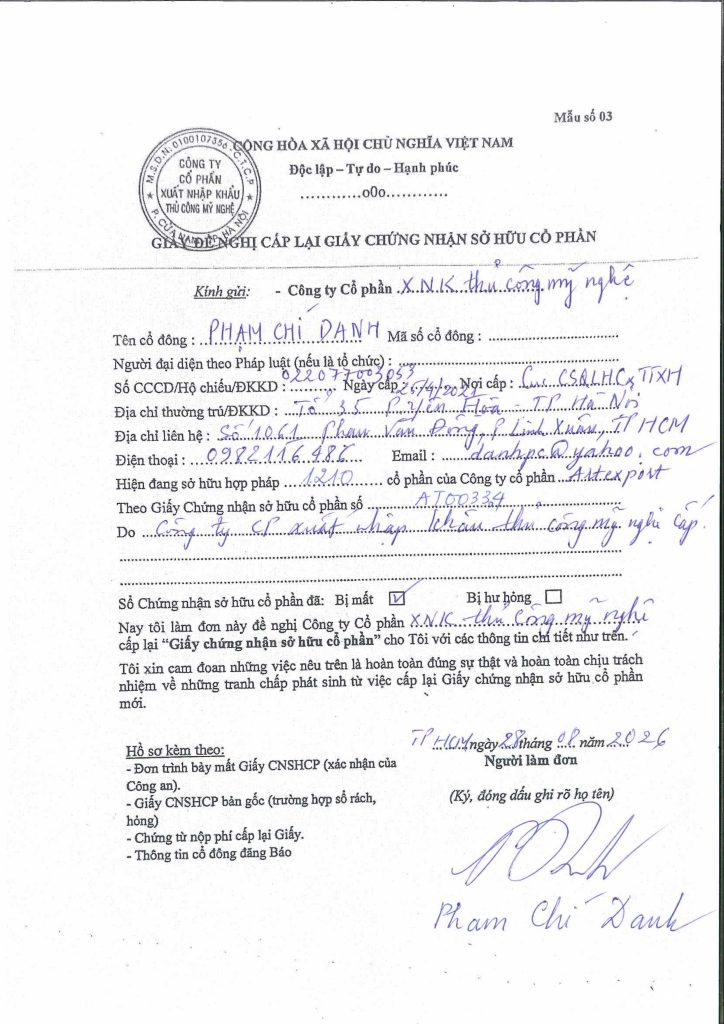 Mẫu số 03
CỘNG HÒA XÃ HỘI CHỦ NGHĨA VIỆT NAM
Độc lập – Tự do – Hạnh phúc
............o0o............
M.S.D.N: 0100107356 - C.T.C.P
CÔNG TY
CỔ PHẦN
XUẤT NHẬP KHẨU
THỦ CÔNG MỸ NGHỆ
P. CỬA NAM - TP. HÀ NỘI
GIẤY ĐỀ NGHỊ CẤP LẠI GIẤY CHỨNG NHẬN SỞ HỮU CỔ PHẦN
Kính gửi: - Công ty Cổ phần X.N.K thủ công mỹ nghệ
Tên cổ đông : PHẠM CHÍ DANH Mã số cổ đông :
Người đại diện theo Pháp luật (nếu là tổ chức) :
Số CCCD/Hộ chiếu/ĐKKD : 022077003053 Ngày cấp 25/4/2021 Nơi cấp : Cục CSQLHC TTXH
Địa chỉ thường trú/ĐKKD : Tổ 35 P Yên Hoà - TP Hà Nội
Địa chỉ liên hệ : Số 1061 Phạm Văn Đồng, P Linh Xuân, TP HCM
Điện thoại : 0982116486 Email : danhpc@yahoo.com
Hiện đang sở hữu hợp pháp 1210 cổ phần của Công ty cổ phần Artexport
Theo Giấy Chứng nhận sở hữu cổ phần số AT00334
Do Công ty CP xuất nhập khẩu thủ công mỹ nghệ cấp.
Sổ Chứng nhận sở hữu cổ phần đã: Bị mất ☑ Bị hư hỏng ☐
Nay tôi làm đơn này đề nghị Công ty Cổ phần X.N.K thủ công mỹ nghệ
cấp lại “Giấy chứng nhận sở hữu cổ phần” cho Tôi với các thông tin chi tiết như trên.
Tôi xin cam đoan những việc nêu trên là hoàn toàn đúng sự thật và hoàn toàn chịu trách
nhiệm về những tranh chấp phát sinh từ việc cấp lại Giấy chứng nhận sở hữu cổ phần
mới.
TP HCM ngày 28 tháng 08 năm 2026
Người làm đơn
(Ký, đóng dấu ghi rõ họ tên)
Phạm Chí Danh
Hồ sơ kèm theo:
- Đơn trình bày mất Giấy CNSHCP (xác nhận của
Công an).
- Giấy CNSHCP bản gốc (trường hợp sổ rách,
hỏng)
- Chứng từ nộp phí cấp lại Giấy.
- Thông tin cổ đông đăng Báo